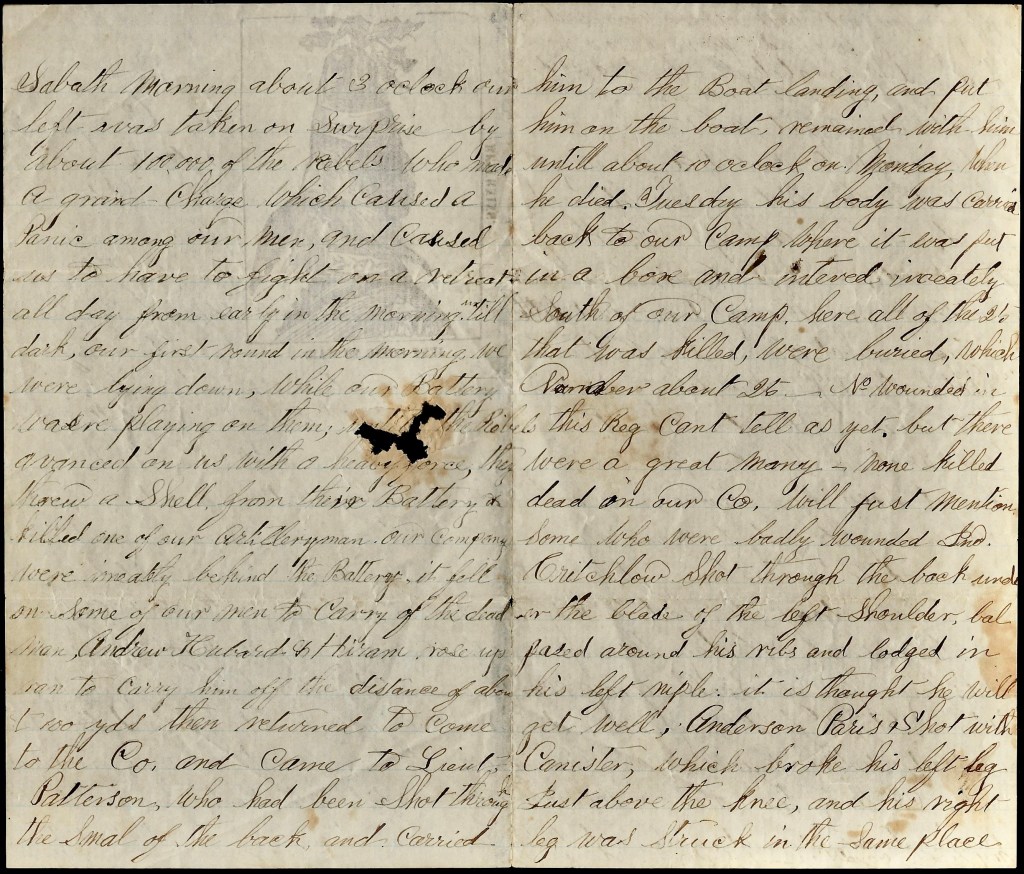 Sabath Morning about 3 oclock our
left was taken on Surprise by
about 100.000 of the rebels who made
a grand Charge which Caused a
Panic among our men, and Caused
us to have to fight on a retreat
all day from early in the morning until
dark, our first round in the morning, we
were lying down, while our Battery
were playing on them; the Rebels
avanced on us with a heavy force, they
threw a Shell from their Battery &
killed one of our Artilleryman our Company
were imeatly behind the Battery it fell
on some of our men to Carry of the dead
man, Andrew Hubard & Hiram rose up
ran to carry him off the distance of about
200 yds then returned to Come
to the Co. and Came to Lieut,
Patterson, who had been Shot through
the Smal of the back and Carried
him to the Boat landing, and put
him on the boat, remained with him
untill about 10 oclock on Monday, when
he died. Tuesday his body was carried
back to our Camp where it was put
in a boxe and intered imeately
South of our Camp. here all of the 25
that was killed, were buried, which
Number about 25 No wounded in
this Reg Cant tell as yet. but there
were a great many – none killed
dead in our Co. Will just mention
some who were badly wounded
Critchlow Shot through the back unde
r the blade of the left Shoulder, bal
pased around his ribs and lodged in
his left niple. it is thought he will
get well, Anderson Paris Shot with
Canister, which broke his left leg
Just above the knee, and his right
leg was struck in the Same place